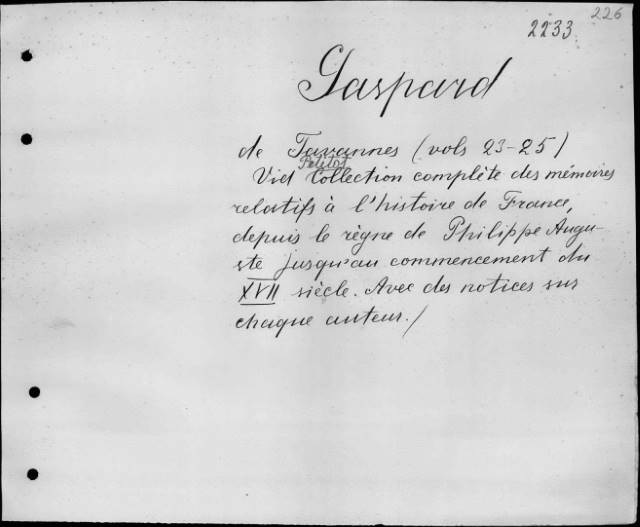 226
2233
Gaspard
de Tavannes (vols 23-25)
Petitot
Vid Collection complète des mémoires
relatifs à l'histoire de France,
depuis le règne de Philippe Augu-
ste jusqu'au commencement du
XVII siècle. Avec des notices sur
chaque auteur./